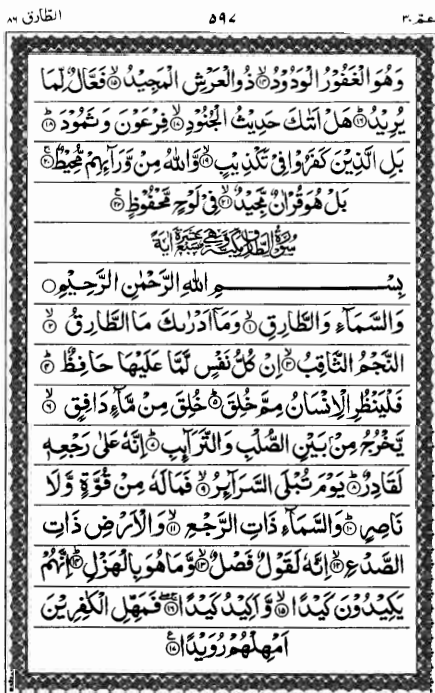 عمّ ٣٠ ٥٩٧ الطّارق ٨٦
وَهُوَ الْغَفُوْرُ الْوَدُوْدُ ۙ﴿۱۴﴾ ذُو الْعَرْشِ الْمَجِيْدُ ۙ﴿۱۵﴾ فَعَّالٌ لِّمَا
يُرِيْدُ ؕ﴿۱۶﴾ هَلْ اَتٰىكَ حَدِيْثُ الْجُنُوْدِ ۙ﴿۱۷﴾ فِرْعَوْنَ وَ ثَمُوْدَ ؕ﴿۱۸﴾
بَلِ الَّذِيْنَ كَفَرُوْا فِيْ تَكْذِيْبٍ ۙ﴿۱۹﴾ وَّاللّٰهُ مِنْ وَّرَآىِٕهِمْ مُّحِيْطٌ ۚ﴿۲۰﴾
بَلْ هُوَ قُرْاٰنٌ مَّجِيْدٌ ۙ﴿۲۱﴾ فِيْ لَوْحٍ مَّحْفُوْظٍ ﴿۲۲﴾
سُوْرَةُ الطَّارِقِ مَكِّيَّةٌ وَّهِيَ سَبْعَ عَشَرَةَ اٰيَةً
بِسْمِ اللّٰهِ الرَّحْمٰنِ الرَّحِيْمِ
وَالسَّمَآءِ وَالطَّارِقِ ۙ﴿۱﴾ وَمَاۤ اَدْرٰىكَ مَا الطَّارِقُ ۙ﴿۲﴾
النَّجْمُ الثَّاقِبُ ۙ﴿۳﴾ اِنْ كُلُّ نَفْسٍ لَّمَّا عَلَيْهَا حَافِظٌ ؕ﴿۴﴾
فَلْيَنْظُرِ الْاِنْسَانُ مِمَّ خُلِقَ ؕ﴿۵﴾ خُلِقَ مِنْ مَّآءٍ دَافِقٍ ۙ﴿۶﴾
يَّخْرُجُ مِنْۢ بَيْنِ الصُّلْبِ وَالتَّرَآىِٕبِ ؕ﴿۷﴾ اِنَّهٗ عَلٰى رَجْعِهٖ
لَقَادِرٌ ؕ﴿۸﴾ يَوْمَ تُبْلَى السَّرَآىِٕرُ ۙ﴿۹﴾ فَمَا لَهٗ مِنْ قُوَّةٍ وَّلَا
نَاصِرٍ ؕ﴿۱۰﴾ وَالسَّمَآءِ ذَاتِ الرَّجْعِ ۙ﴿۱۱﴾ وَالْاَرْضِ ذَاتِ
الصَّدْعِ ۙ﴿۱۲﴾ اِنَّهٗ لَقَوْلٌ فَصْلٌ ۙ﴿۱۳﴾ وَّمَا هُوَ بِالْهَزْلِ ؕ﴿۱۴﴾ اِنَّهُمْ
يَكِيْدُوْنَ كَيْدًا ۙ﴿۱۵﴾ وَّاَكِيْدُ كَيْدًا ۚ﴿۱۶﴾ فَمَهِّلِ الْكٰفِرِيْنَ
اَمْهِلْهُمْ رُوَيْدًا ﴿۱۷﴾